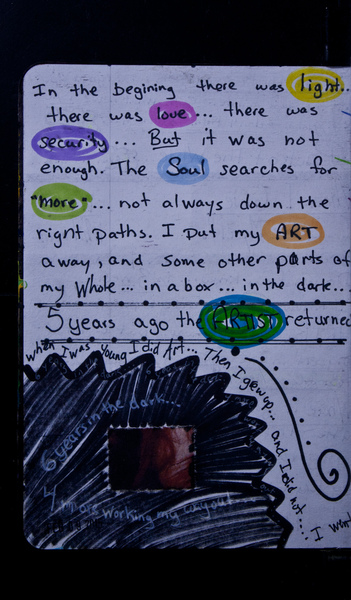 In the begining there was light...
there was love... there was
security... But it was not
enough. The Soul searches for
"more"... not always down the
right paths. I put my ART
away, and some other parts of
my Whole... in a box... in the dark...
5 years ago the ARTIST returned
when I was young I did Art... Then I grew up... and I did not.... I went
6 years in the dark...
4 more working my way out